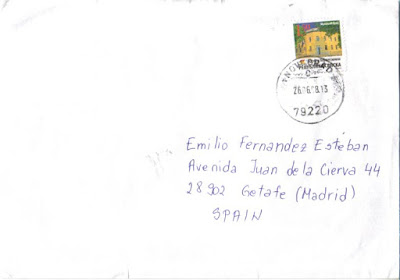 26.06.08.13
79220
Emilio Fernandez Estéban
Avenida Juan de la Cierva 44
28902 Getafe (Madrid)
SPAIN